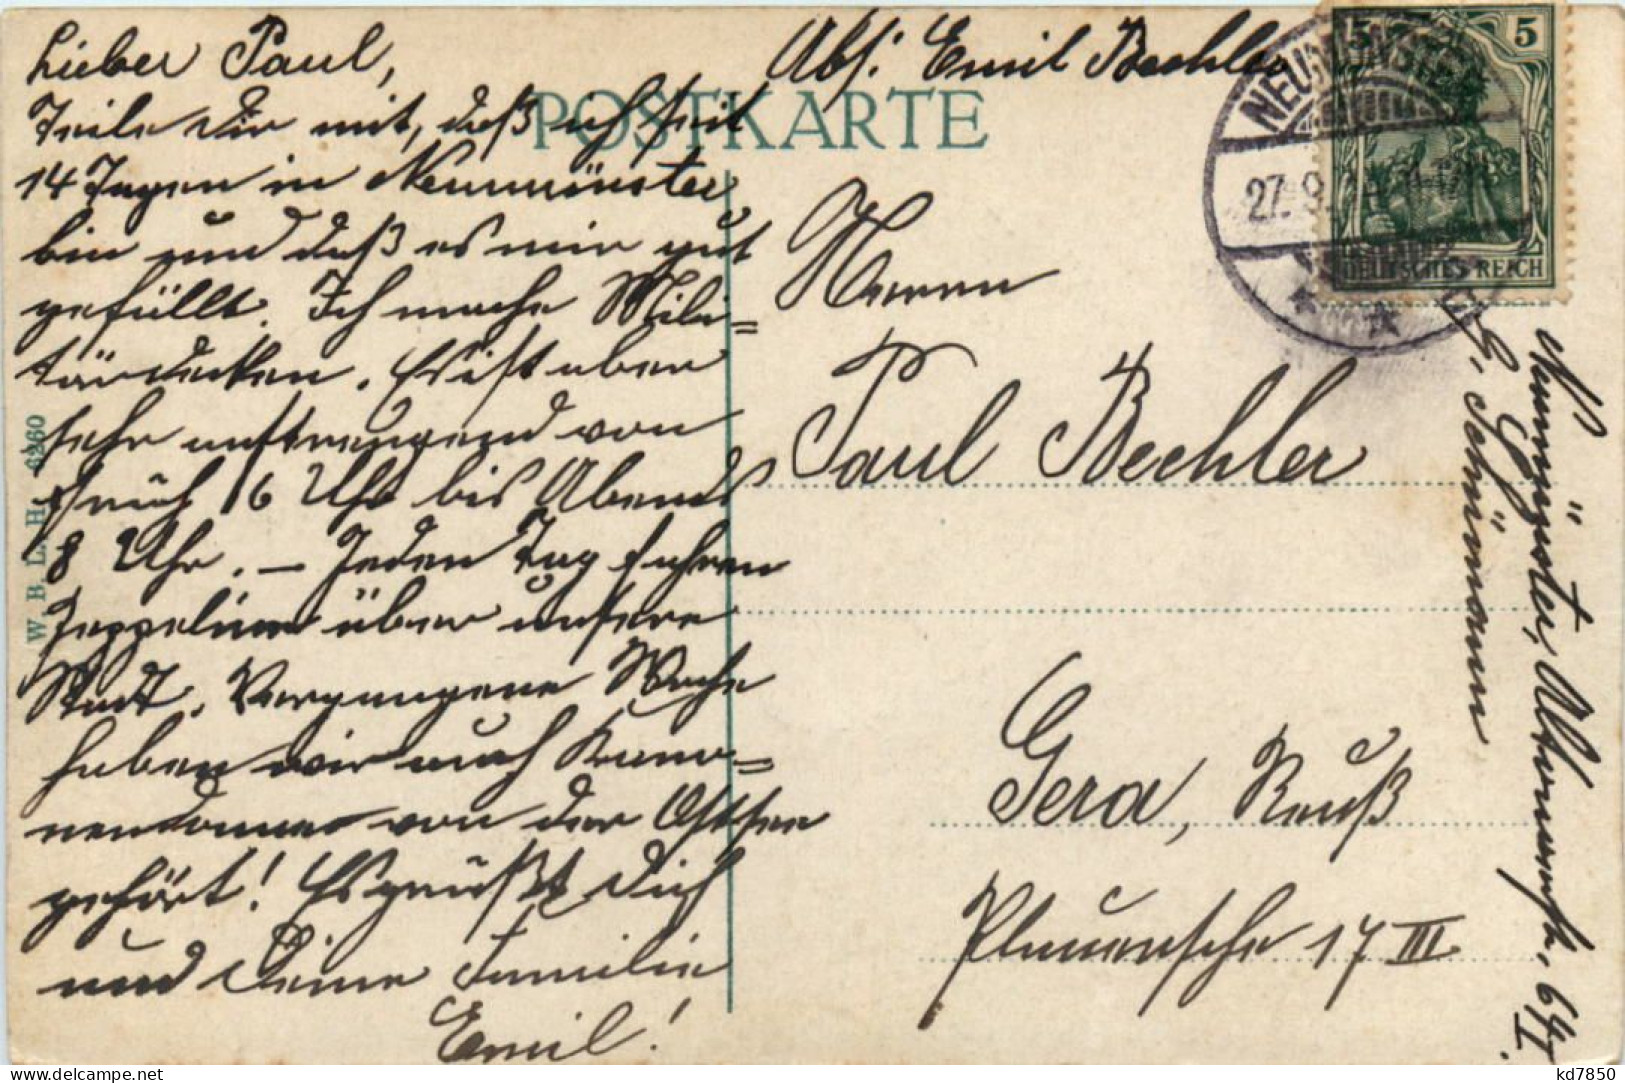 Lieber Paul,
Teile Dir mit, daß ich seit
14 Tagen in Neumünster
bin und daß es mir gut
gefällt. Ich mache Mili=
tärdecken. Es ist aber
sehr anstrengend von
früh 6 Uhr bis Abends
8 Uhr. — Jeden Tag fahren
Zeppeline über unsere
Stadt. Vergangene Woche
haben wir auch Kano=
nendonner von der Ostsee
gehört! Es grüßt Dich
und Deine Familie
Emil!
W. B. L. H. 6260
POSTKARTE
Abs: Emil Bechler
NEUMÜNSTER
27. 9.
5 5
DEUTSCHES REICH
Herrn
Paul Bechler
Gera, Reuß
Plauensche 17 III
Neumünster, Altonaerstr. 64 I.
b. Schümann
kd7850